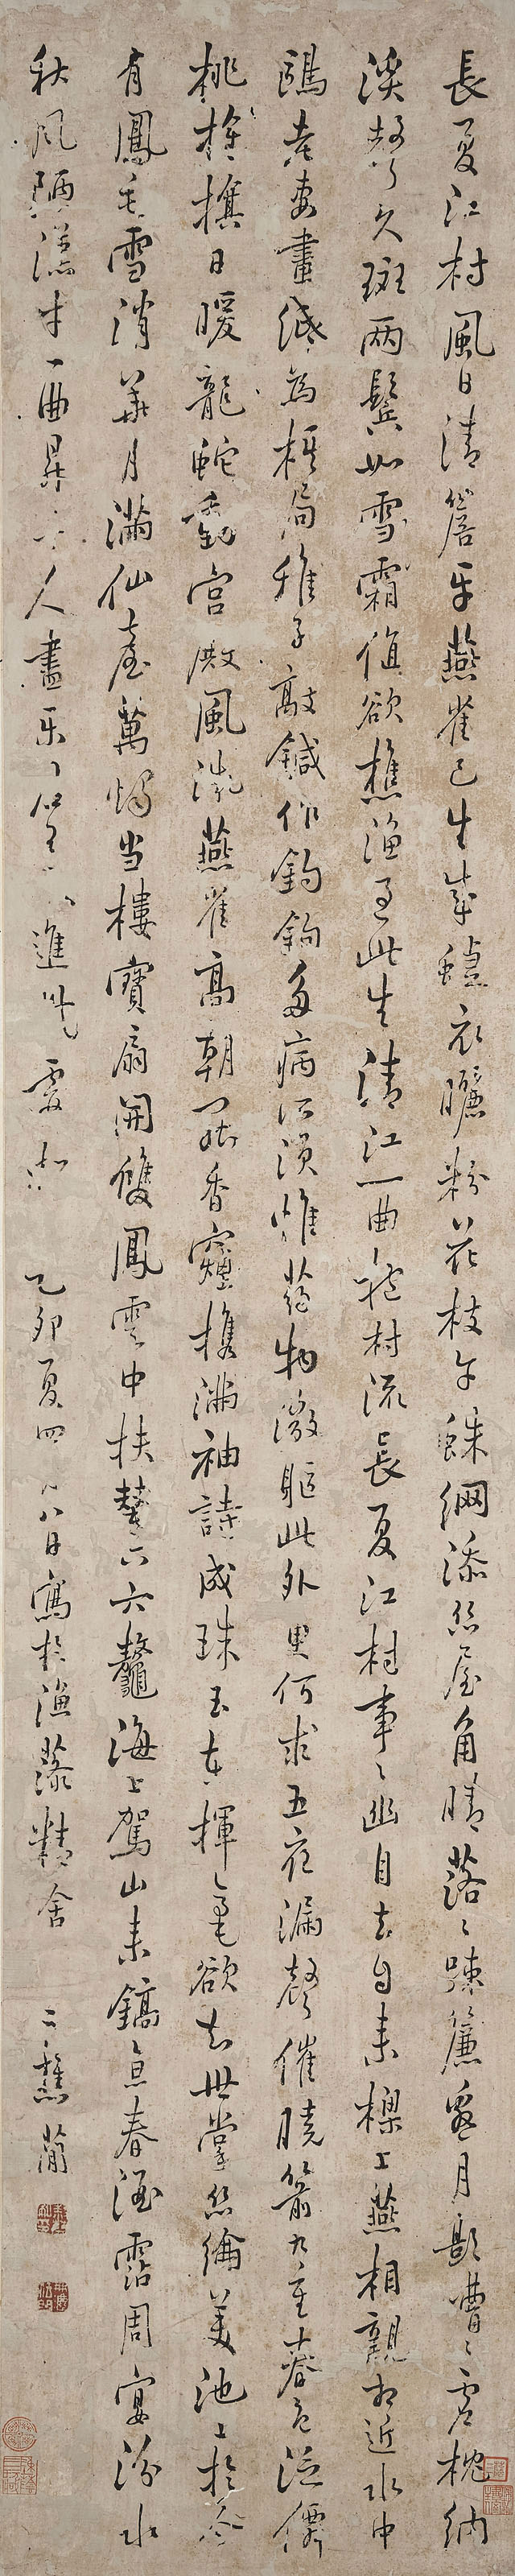 長夏江村風日清簷牙燕雀已生成蝶衣曬粉花枝午蛛網添絲屋角晴落ゝ疎簾邀月影嘈ゝ虛枕納
溪聲久斑兩鬢如雪霜值欲樵漁過此生清江一曲抱村流長夏江村事ゝ幽自去自來樑上燕相親相近水中
鷗老妻畫紙為棋局稚子敲鍼作釣鉤多病所須惟藥物微軀此外更何求五夜漏聲催曉箭九重春色醉僊
桃旌旗日暖龍蛇動宮殿風微燕雀高朝罷香煙攜滿袖詩成珠玉在揮毫欲知世掌絲綸美池上於今
有鳳毛雪消華月滿仙臺萬燭当樓寶扇開雙鳳雲中扶輦下六鼇海上駕山來鎬京春酒霑周宴汾水
秋風陋漢才一曲昇平人盡樂君王又進紫霞杯 乙卯夏四月八日寫於漁藻精舍 二樵簡